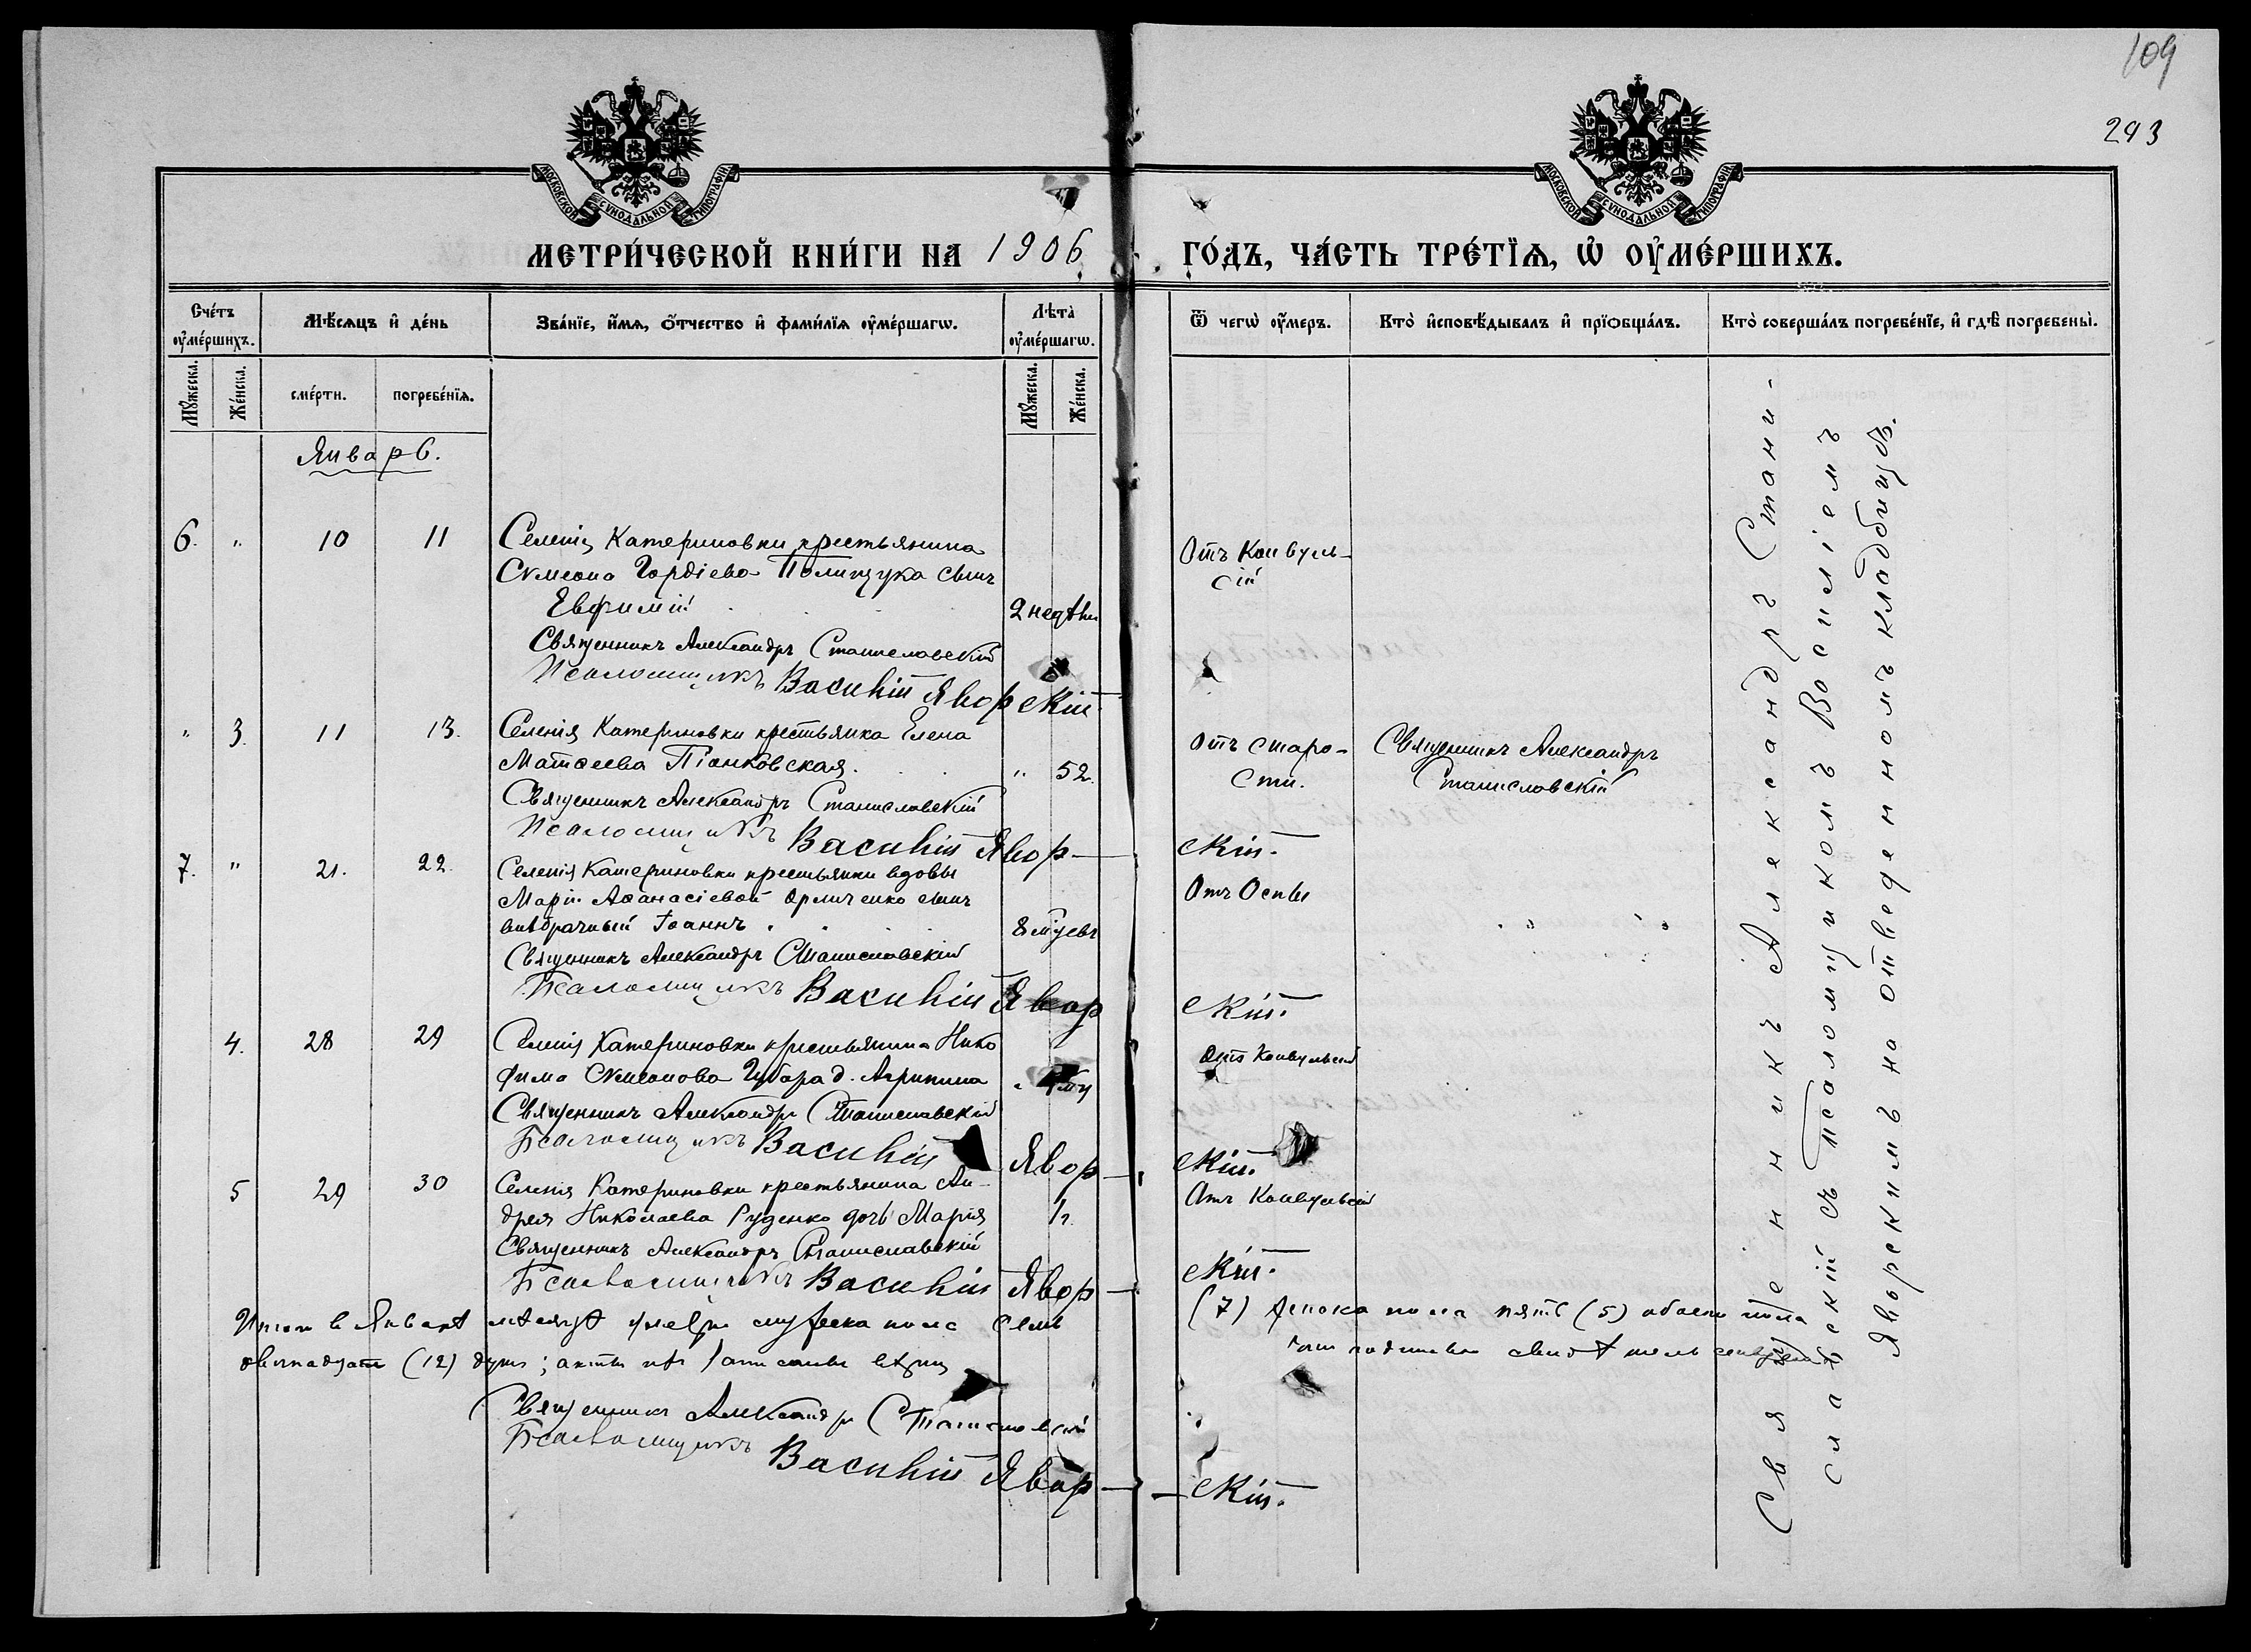 109
293
МОСКОВСКОЙ СѴНОДАЛЬНОЙ ТИПОГРАФІИ
МОСКОВСКОЙ СѴНОДАЛЬНОЙ ТИПОГРАФІИ
МЕТРИ́ЧЕСКОЙ КНИ́ГИ НА 1906 ГО́ДЪ, ЧА́СТЬ ТРЕ́ТЇѦ, Ѡ҆ ОУ҆МЕ́РШИХЪ.
Сче́тъ оу҆ме́ршихъ.
Мꙋ́жеска.
Же́нска.
Мѣ́сѧцъ и҆ де́нь
сме́рти.
погребе́нїѧ.
Зва́нїе, и҆́мѧ, ѻ҆́тчество и҆ фами́лїѧ оу҆ме́ршагѡ.
Лѣ́та оу҆ме́ршагѡ.
Мꙋ́жеска.
Же́нска.
Ѿ чегѡ̀ оу҆́меръ.
Кто̀ и҆сповѣ́дывалъ и҆ прїѻбща́лъ.
Кто̀ соверша́лъ погребе́нїе, и҆ гдѣ̀ погребены̀.
Январь.
6. " 10 11 Селенія Катериновки крестьянина
Сѵмеона Гордіева Полищука сынъ
Евфимій 2 недѣли
Отъ Конвуль-
сій
Священникъ Александръ Станиславскій
Псаломщикъ Василій Яворскій
" 3. 11 13. Селенія Катериновки крестьянка Елена
Матѳеева Піонковская. " 52.
Отъ старо-
сти.
Священникъ Александръ
Станиславскій
Священникъ Александръ Станиславскій
Псаломщикъ Василій Явор-скій.
7. " 21. 22. Селенія Катериновки крестьянки вдовы
Маріи Аѳанасіевой сынъ
внѣбрачный Іоаннъ 8 мѣсяц
Отъ Оспы
Священникъ Александръ Станиславскій
Псаломщикъ Василій Яворскій.
4. 28 29 Селенія Катериновки крестьянина Нико
Сѵмеонова д. Агрипина
Отъ Конвульсій
Священникъ Александръ Станиславскій
Псаломщикъ Василій Явор-скій.
5 29 30 Селенія Катериновки крестьянина Ан-
дрея Николаева Руденко дочь Марія 1 г.
Отъ Конвульсій
Священникъ Александръ Станиславскій
Псаломщикъ Василій Явор-скій.
Итого в Январѣ мѣсяцѣ умерло мужеска пола семь (7) женска пола пять (5) обоего пола
двѣнадцать (12) душ;
Священникъ Александръ Станиславскій
Псаломщикъ Василій Явор-скій.
Священникъ Александръ Стани-
славскій съ псаломщикомъ Василіемъ
Яворскимъ на отведенномъ кладбищѣ.